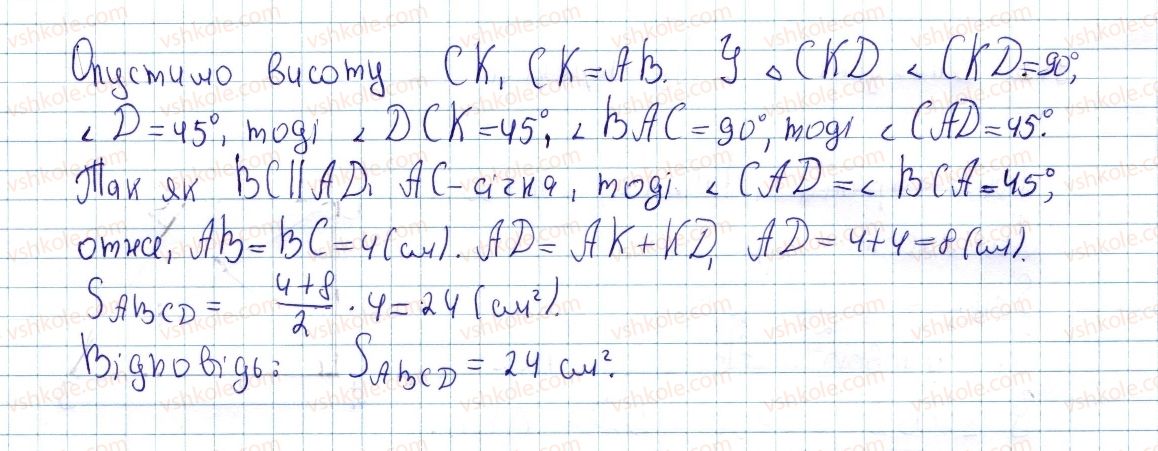 Опустимо висоту CK, CK=AB. У △ CKD < CKD=90°,
< D=45°, тоді < DCK=45°, < BAC=90°, тоді < CAD=45°.
Так як BC||AD, AC-січна, тоді < CAD=< BCA=45°,
отже, AB=BC=4(см). AD=AK+KD, AD=4+4=8(см).
S_ABCD = (4+8)/2 · 4=24 (см²).
Відповідь: S_ABCD = 24 см².